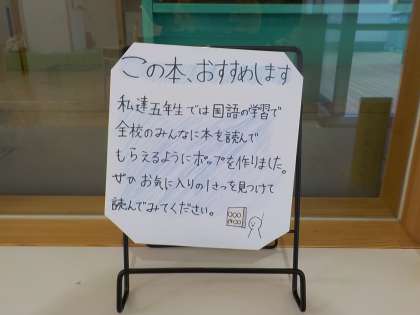 この本、おすすめします
私達五年生では国語の学習で
全校のみんなに本を読んで
もらえるようにポップを作りました。
ぜひ お気に入りの1さつを見つけて
読んでみてください。